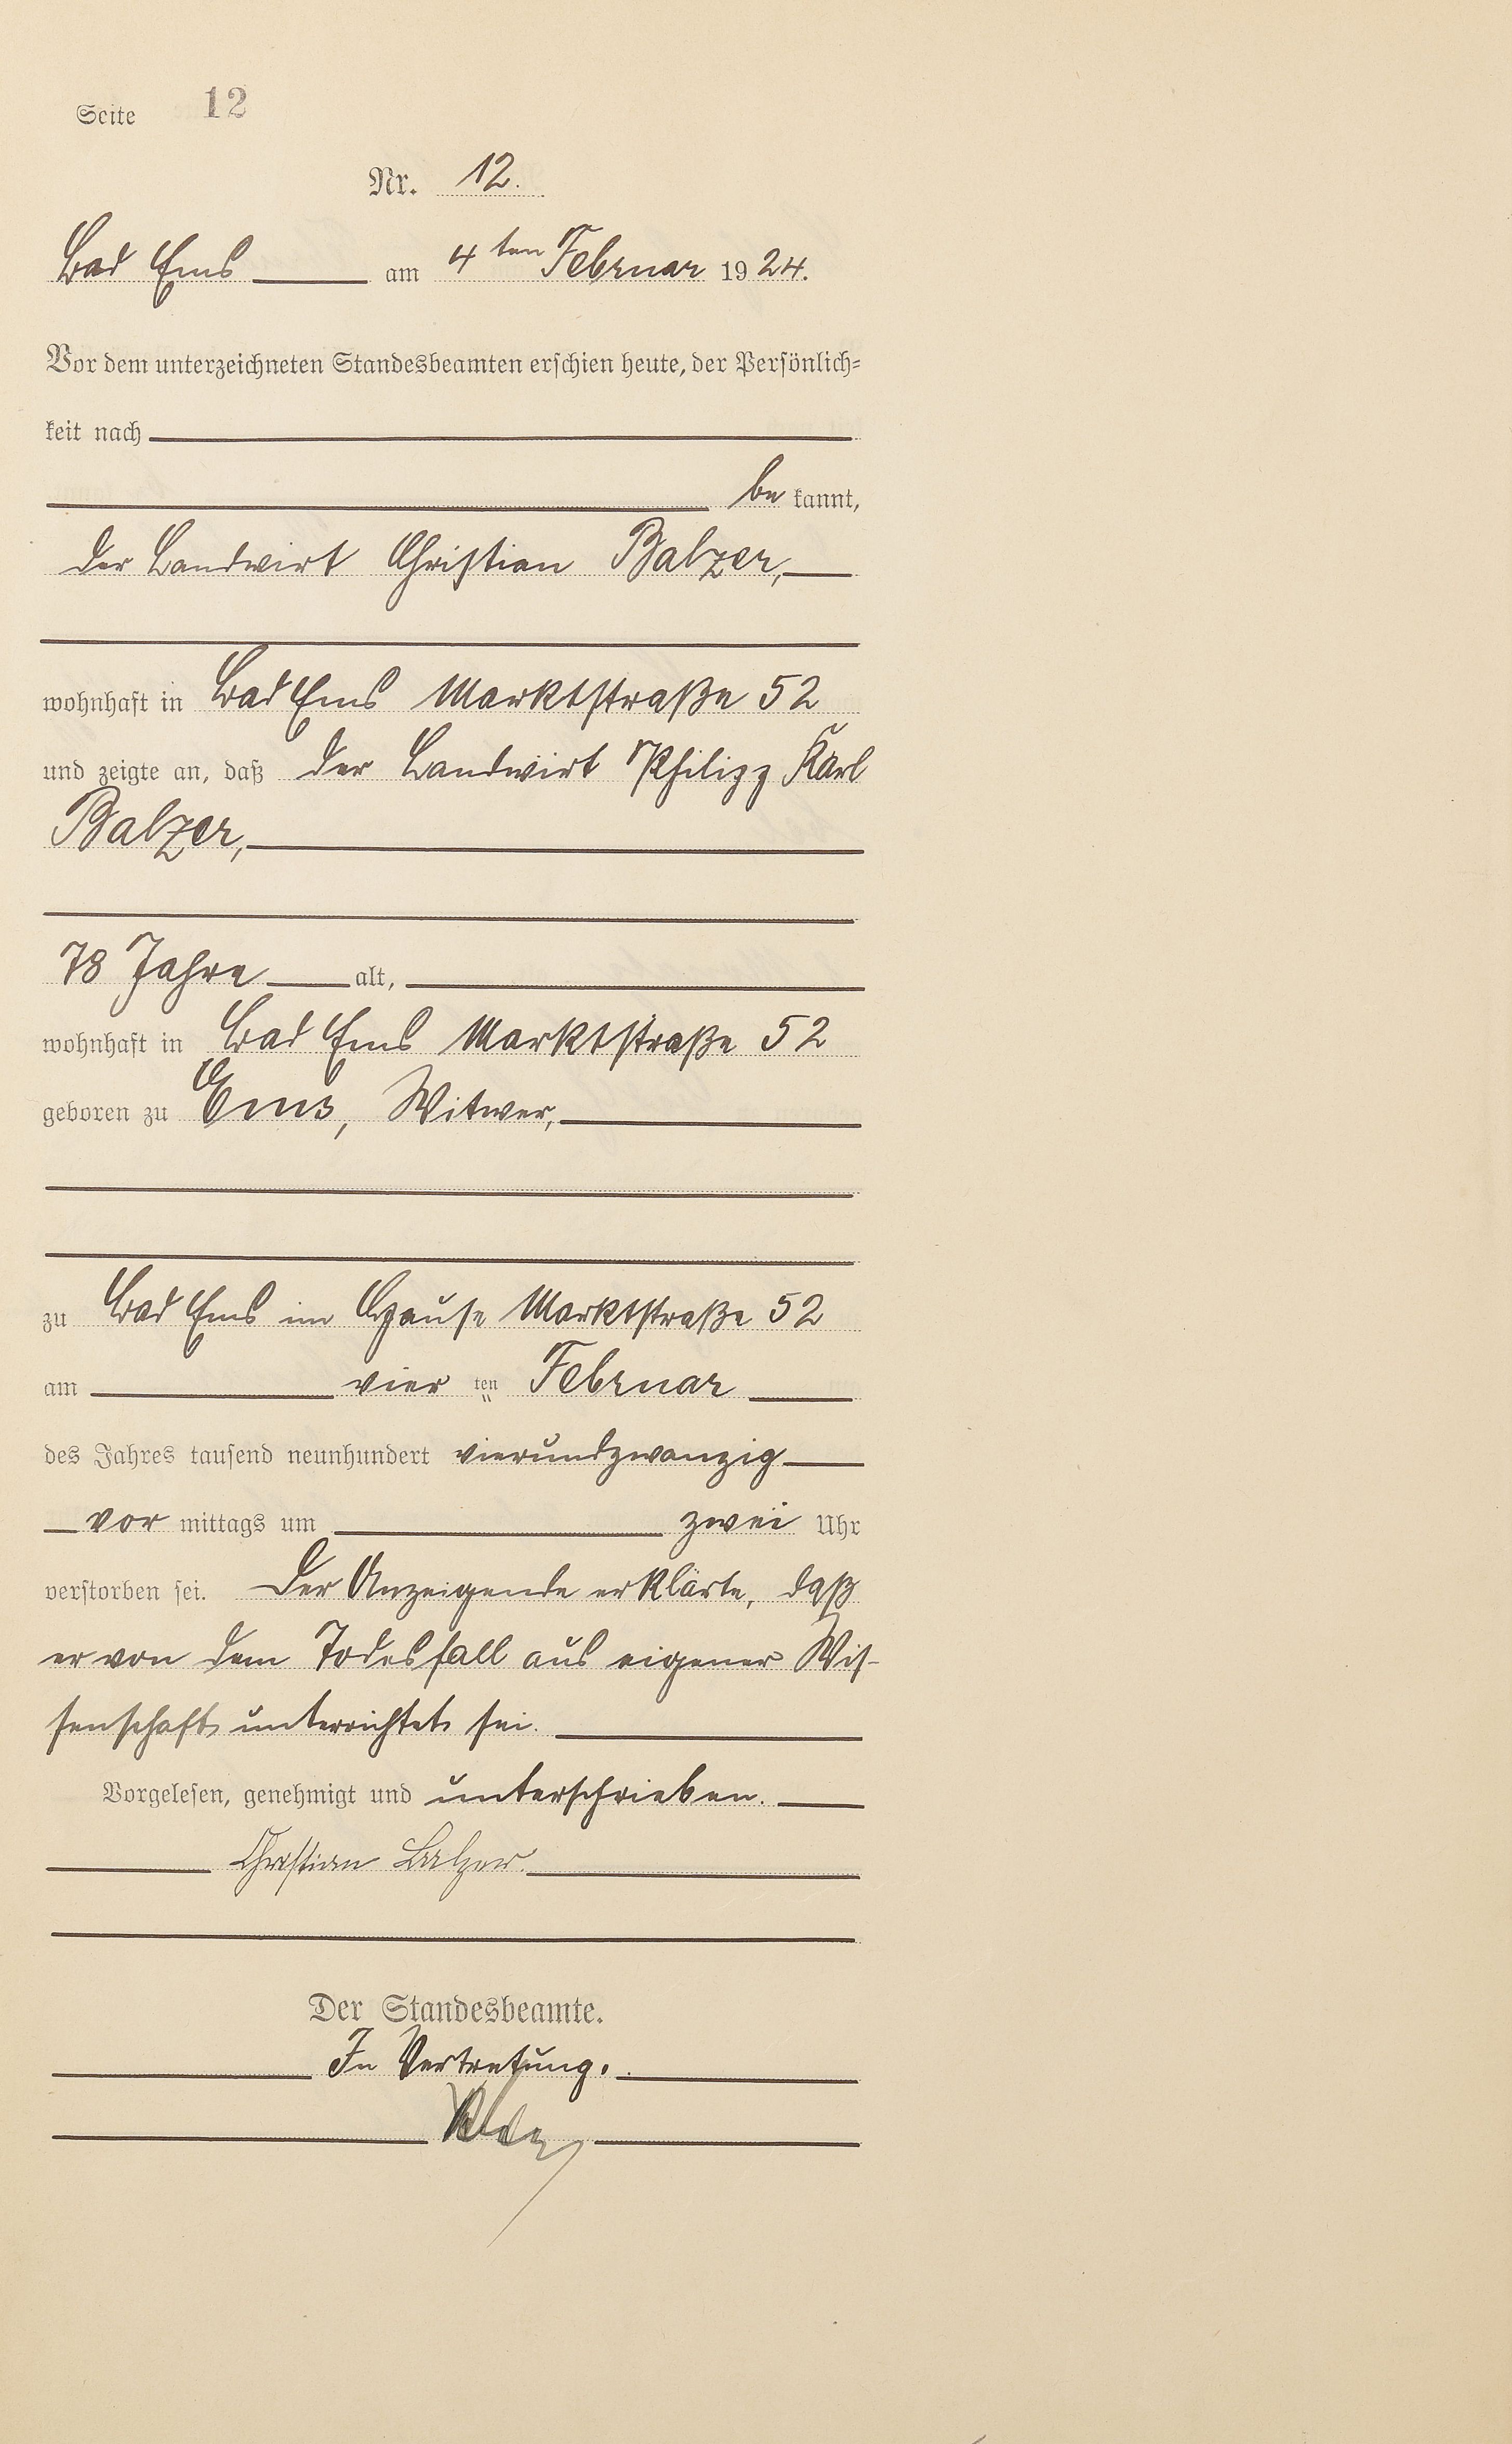 Seite 12
Nr. 12.
Bad Ems am 4ten Februar 1924.
Vor dem unterzeichneten Standesbeamten erschien heute, der Persönlich=
keit nach
be kannt,
der Landwirt Christian Balzer,
wohnhaft in Bad Ems Marktstraße 52
und zeigte an, daß der Landwirt Philipp Karl
Balzer,
78 Jahre alt,
wohnhaft in Bad Ems Marktstraße 52
geboren zu Ems, Witwer,
zu Bad Ems im Hause Marktstraße 52
am vier ten Februar
des Jahres tausend neunhundert vierundzwanzig
vor mittags um zwei Uhr
verstorben sei. Der Anzeigende erklärte, daß
er von dem Todesfall aus eigener Wis-
senschaft unterrichtet sei.
Vorgelesen, genehmigt und unterschrieben.
Christian Balzer.
Der Standesbeamte.
In Vertretung.